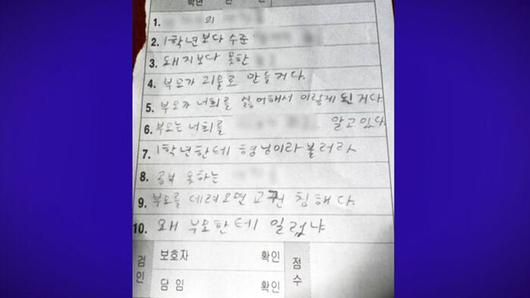 학년 반
1. 의
2. 1학년보다 수준
3. 돼지보다 못한
4. 부모가 괴물로 만든거다.
5. 부모가 너희를 싫어해서 이렇게 된거다
6. 부모는 너희를 알고있다.
7. 1학년한테 형님이라 불러라
8. 공부 못하는
9. 부모를 데려오면 교권 침해다.
10. 왜 부모한테 일렀냐
검인 보호자 확인 점수
담임 확인